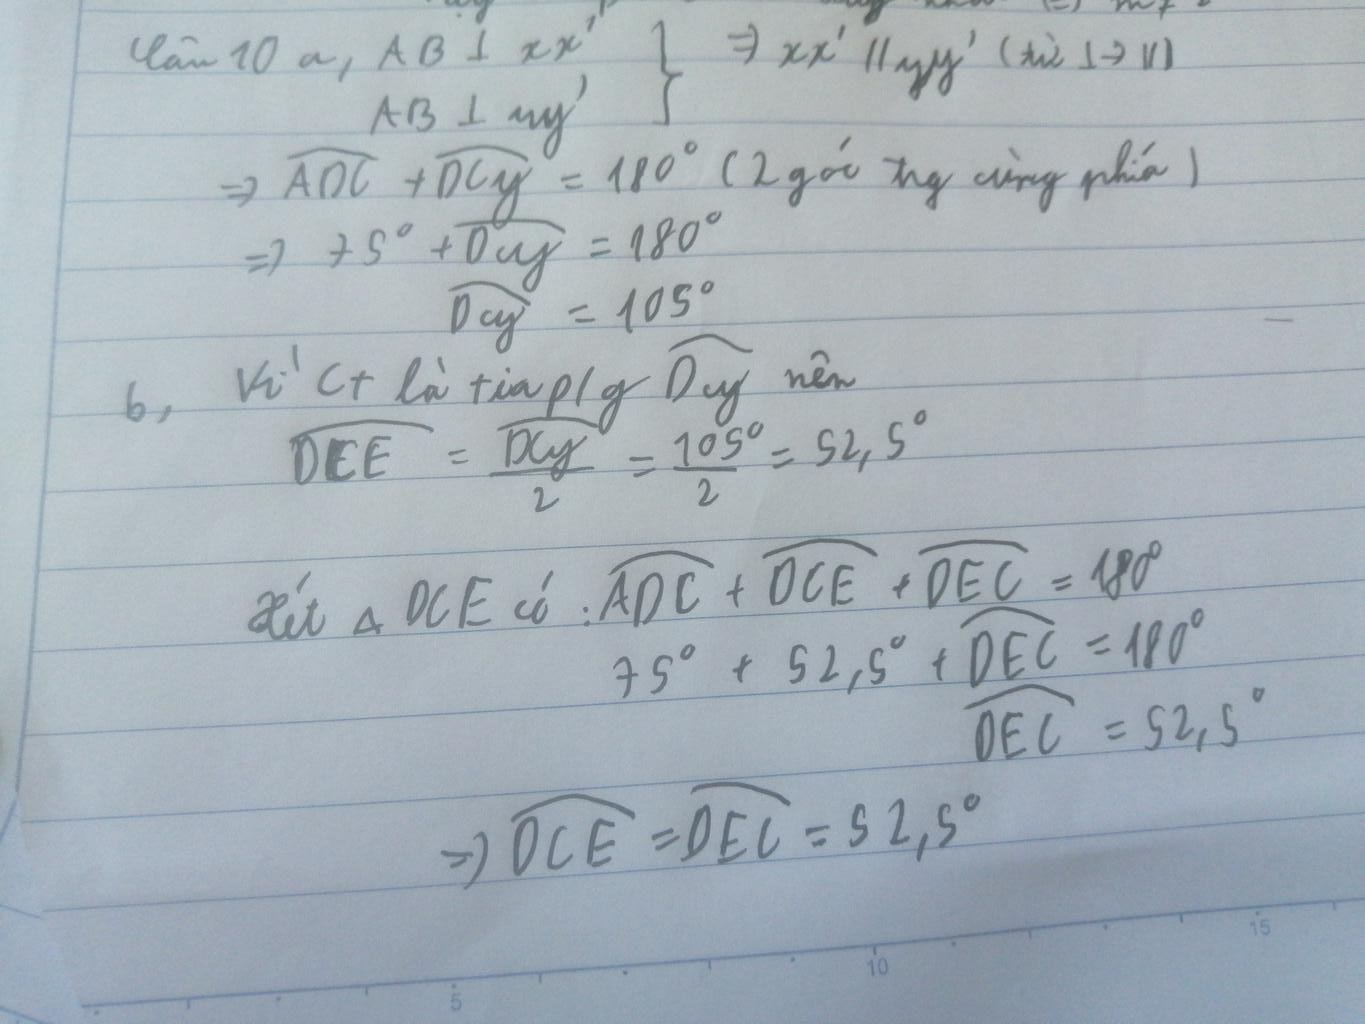 Câu 10 a, AB ⊥ xx' } ⇒ xx' // yy' (từ ⊥ → //)
AB ⊥ yy'
⇒ ADC + DCy = 180° (2 góc tng cùng phía)
⇒ 75° + Dcy = 180°
Dcy = 105°
b, Vì Ct là tia p/g Dcy nên
DCE = DCy/2 = 105°/2 = 52,5°
Xét △ DCE có : ADC + DCE + DEC = 180°
75° + 52,5° + DEC = 180°
DEC = 52,5°
⇒ DCE = DEC = 52,5°
5 10 15